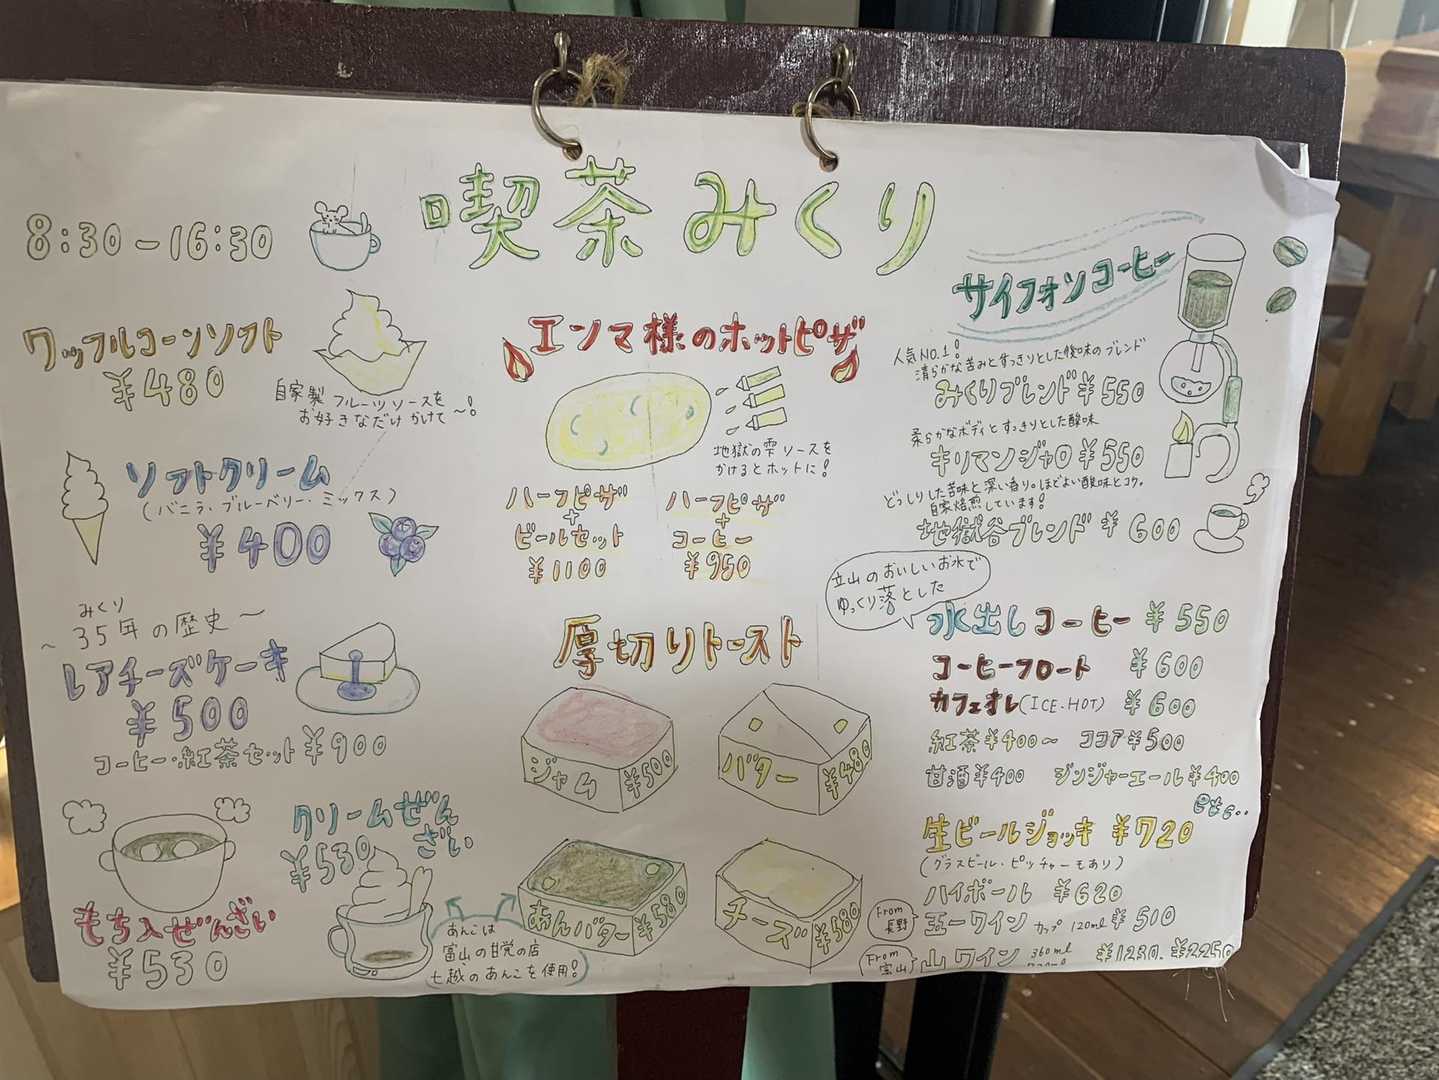 喫茶みくり
8:30-16:30
ワッフルコーンソフト
¥480
自家製フルーツソースを
お好きなだけかけて〜!
ソフトクリーム
(バニラ・ブルーベリー・ミックス)
¥400
みくり
〜35年の歴史〜
レアチーズケーキ
¥500
コーヒー・紅茶セット¥900
もち入ぜんざい
¥530
クリームぜんざい
¥530
あんこは
富山の甘党の店
七越のあんこを使用!
エンマ様のホットピザ
地獄の雫ソースを
かけるとホットに!
ハーフピザ
+
ビールセット
¥1100
ハーフピザ
+
コーヒー
¥950
厚切りトースト
ジャム ¥500
バター ¥480
あんバター ¥580
チーズ ¥580
サイフォンコーヒー
人気NO.1!
清らかな苦みとすっきりとした後味のブレンド
みくりブレンド¥550
柔らかなボディとすっきりとした酸味
キリマンジャロ¥550
どっしりした苦味と深い香り。ほどよい酸味とコク。
自家焙煎しています!
地獄谷ブレンド¥600
立山のおいしいお水で
ゆっくり落とした
水出しコーヒー ¥550
コーヒーフロート ¥600
カフェオレ(ICE・HOT) ¥600
紅茶¥400〜 ココア¥500
甘酒¥400 ジンジャーエール¥400
生ビールジョッキ ¥720
(グラスビール・ピッチャーもあり)
ハイボール ¥620
From
長野
五一ワイン カップ 120ml ¥510
From
富山
山ワイン 360ml ¥1230. ¥2250